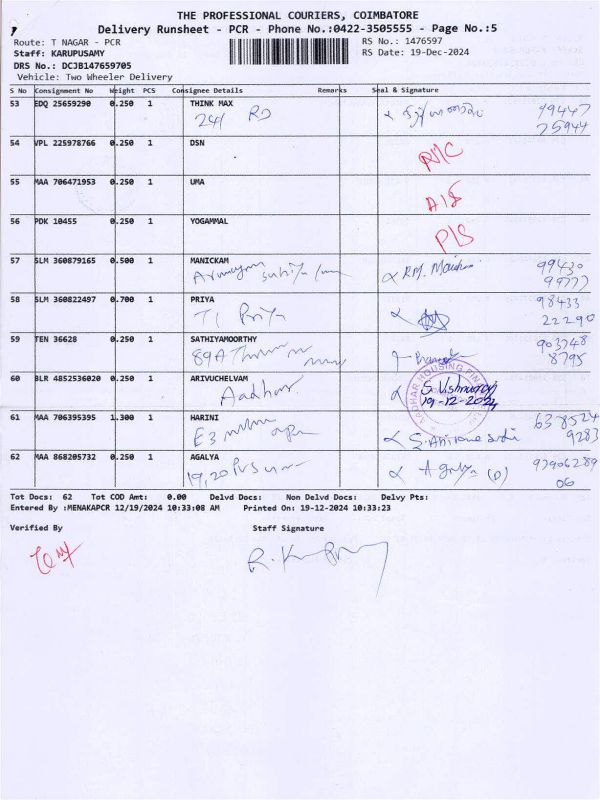 THE PROFESSIONAL COURIERS, COIMBATORE
Delivery Runsheet - PCR - Phone No.:0422-3505555 - Page No.:5
Route: T NAGAR - PCR RS No.: 1476597
Staff: KARUPUSAMY RS Date: 19-Dec-2024
DRS No.: DCJB147659705
Vehicle: Two Wheeler Delivery
S No Consignment No Weight PCS Consignee Details Remarks Seal & Signature
53 EDQ 25659290 0.250 1 THINK MAX 79447
241 RD 25944
54 VPL 225978766 0.250 1 DSN
55 MAA 706471953 0.250 1 UMA
A/S
56 PDK 10455 0.250 1 YOGAMMAL
P/S
57 SLM 360879165 0.500 1 MANICKAM 99430
RM. 99777
58 SLM 360822497 0.700 1 PRIYA 98433
T1 Priya 22290
59 TEN 36628 0.250 1 SATHIYAMOORTHY 903748
89A 8795
60 BLR 4852536020 0.250 1 ARIVUCHELVAM
Aadhar S. Vishnu
19-12-2024
AADHAR HOUSING FIN
61 MAA 706395395 1.300 1 HARINI 638524
E3 9283
62 MAA 868205732 0.250 1 AGALYA 93906289
19,20 PVS 06
Tot Docs: 62 Tot COD Amt: 0.00 Delvd Docs: Non Delvd Docs: Delvy Pts:
Entered By :MENAKAPCR 12/19/2024 10:33:08 AM Printed On: 19-12-2024 10:33:23
Verified By Staff Signature